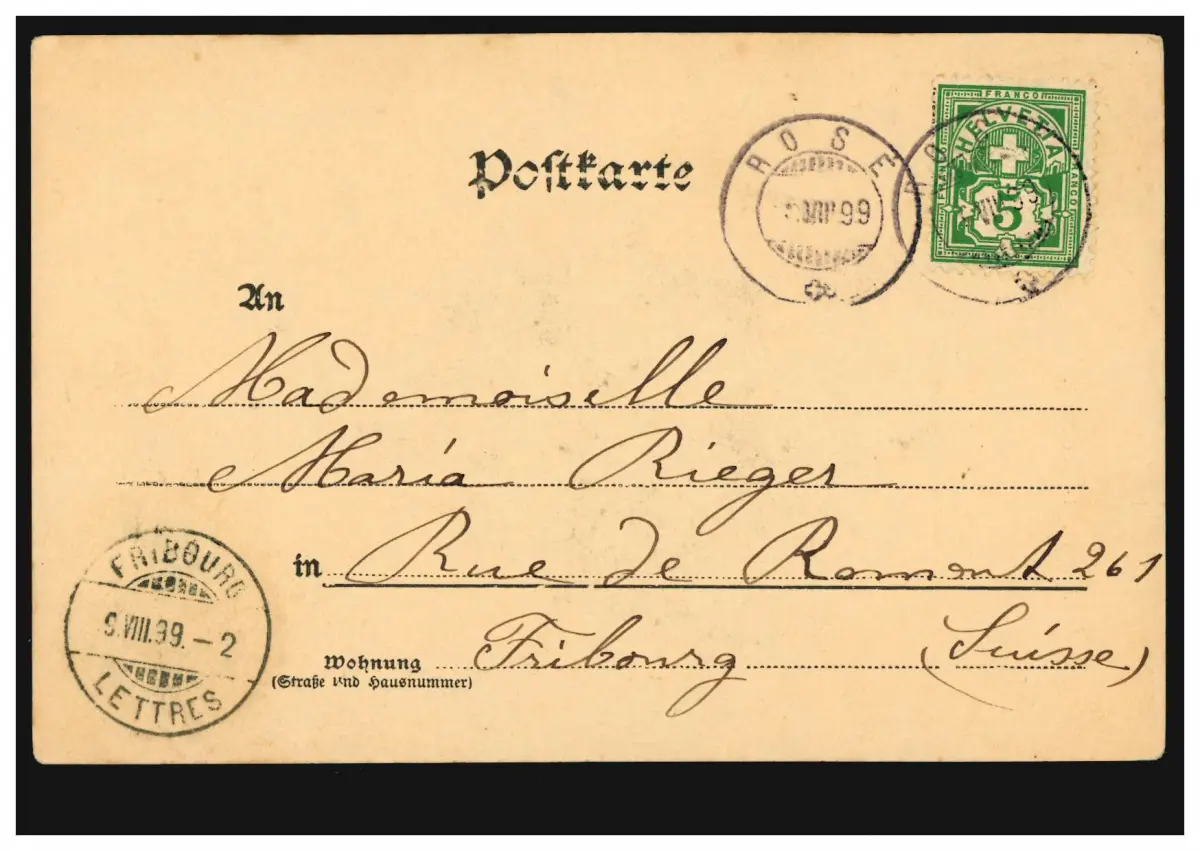 Postkarte
ROSÉ
VIII 99
FRANCO
HELVETIA
FRANCO
FRANCO
5
An
Mademoiselle
Maria Rieger
in Rue de Romont 261
Wohnung Fribourg (Suisse)
(Straße und Hausnummer)
FRIBOURG
9.VIII.99.–2
LETTRES